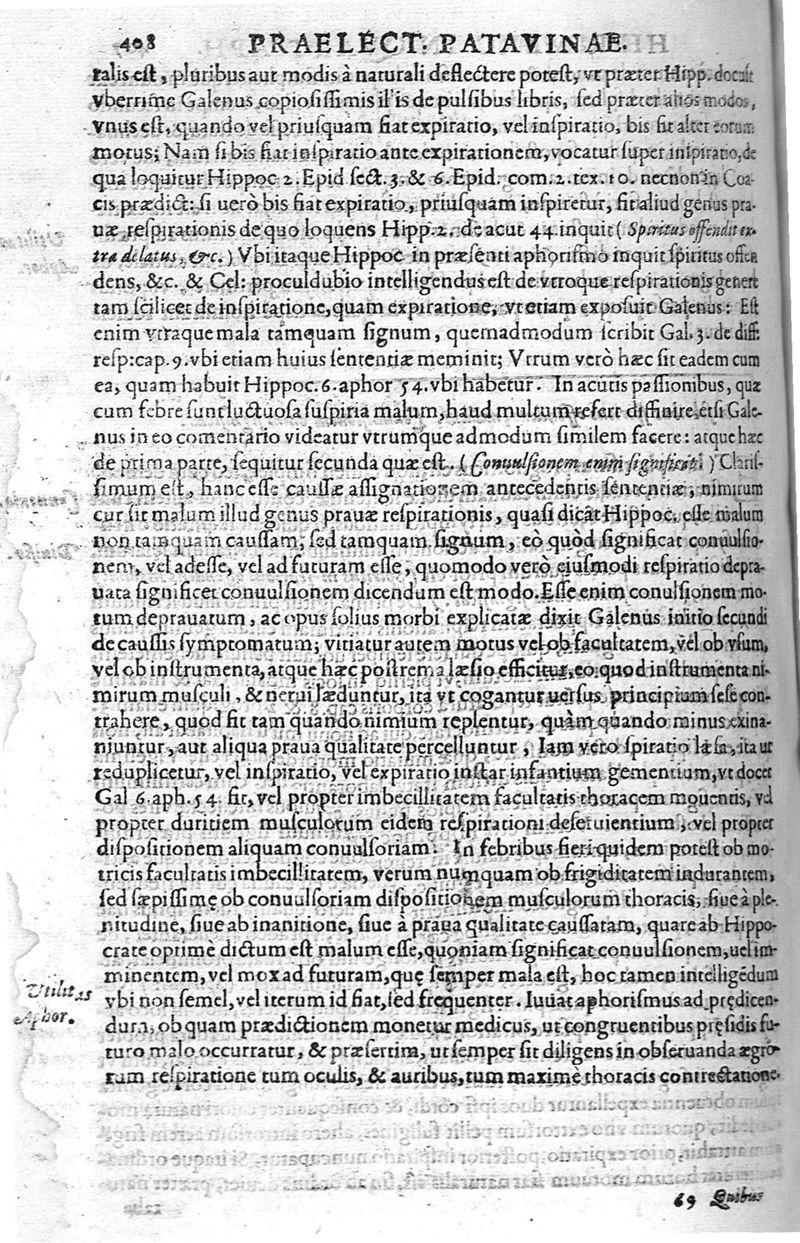 408 PRAELECT. PATAVINAE.
ralis est, pluribus aut modis à naturali deflectere potest, vt præter Hipp. docuit
vberrime Galenus copiosissimis illis de pulsibus libris, sed præter alios modos,
vnus est, quando vel priusquam fiat expiratio, vel inspiratio, bis fit alter eorum
motus; Nam si bis fiat inspiratio ante expirationem, vocatur super inspiratio, de
qua loquitur Hippoc 2. Epid sect. 3. & 6. Epid. com. 2. tex. 10. necnon in Coa-
cis prædict: si uerò bis fiat expiratio, priusquam inspiretur, fit aliud genus pra-
uæ respirationis de quo loquens Hipp. 2. de acut 44. inquit ( Spiritus offendit ex-
tra delatus, &c. ) Vbi itaque Hippoc in præsenti aphorismo inquit spiritus offen
dens, &c. & Cel: proculdubio intelligendus est de vtroque respirationis genere
tam scilicet de inspiratione, quam expiratione, vt etiam exposuit Galenus: Est
enim vtraque mala tamquam signum, quemadmodum scribit Gal. 3. de diff.
resp: cap. 9. vbi etiam huius sententiæ meminit; Vtrum verò hæc sit eadem cum
ea, quam habuit Hippoc. 6. aphor 54. vbi habetur. In acutis passionibus, quæ
cum febre sunt luctuosa suspiria malum, haud multum refert diffinire, etsi Gale-
nus in eo comentario videatur vtrumque admodum similem facere: atque hæc
de prima parte, sequitur secunda quæ est. ( Conuulsionem enim significat ) Claris-
simum est, hanc esse caussæ assignationem antecedentis sententiæ, nimirum
cur sit malum illud genus prauæ respirationis, quasi dicat Hippoc. esse malum
non tamquam caussam; sed tamquam signum, eò quòd significat conuulsio-
nem, vel adesse, vel ad futuram esse, quomodo verò eiusmodi respiratio depra-
uata significet conuulsionem dicendum est modo. Esse enim conulsionem mo-
tum deprauatum, ac opus solius morbi explicatæ dixit Galenus initio secundi
de caussis symptomatum; vitiatur autem motus vel ob facultatem, vel ob vsum,
vel ob instrumenta, atque hæc postrema læsio efficitur, eo quod instrumenta ni-
mirum musculi, & nerui læduntur, ita vt cogantur uersus principium sese con-
trahere, quod fit tam quando nimium replentur, quàm quando minus exina-
niuntur, aut aliqua praua qualitate percelluntur, Iam vero spiratio læsa, ita ut
reduplicetur, vel inspiratio, vel expiratio instar infantium gementium, vt docet
Gal 6. aph. 54. fit, vel propter imbecillitatem facultatis thoracem mouentis, vel
propter duritiem musculorum eidem respirationi deseruientium, vel propter
dispositionem aliquam conuulsoriam. In febribus fieri quidem potest ob mo-
tricis facultatis imbecillitatem, verum numquam ob frigiditatem indurantem,
sed sæpissimę ob conuulsoriam dispositionem musculorum thoracis, siue à ple-
nitudine, siue ab inanitione, siue à praua qualitate caussatam, quare ab Hippo-
crate optimè dictum est malum esse, quoniam significat conuulsionem, uel im-
minentem, vel mox ad futuram, quę semper mala est, hoc tamen intelligẽdum
vbi non semel, vel iterum id fiat, sed frequenter. Iuuat aphorismus ad prędicen-
dura, ob quam prædictionem monetur medicus, ut congruentibus pręsidis fu-
turo malo occurratur, & præsertim, ut semper sit diligens in obseruanda ægro-
tam respiratione tum oculis, & auribus, tum maximè thoracis contrectatione.
Utilitas
Aphor.
69 Quibus